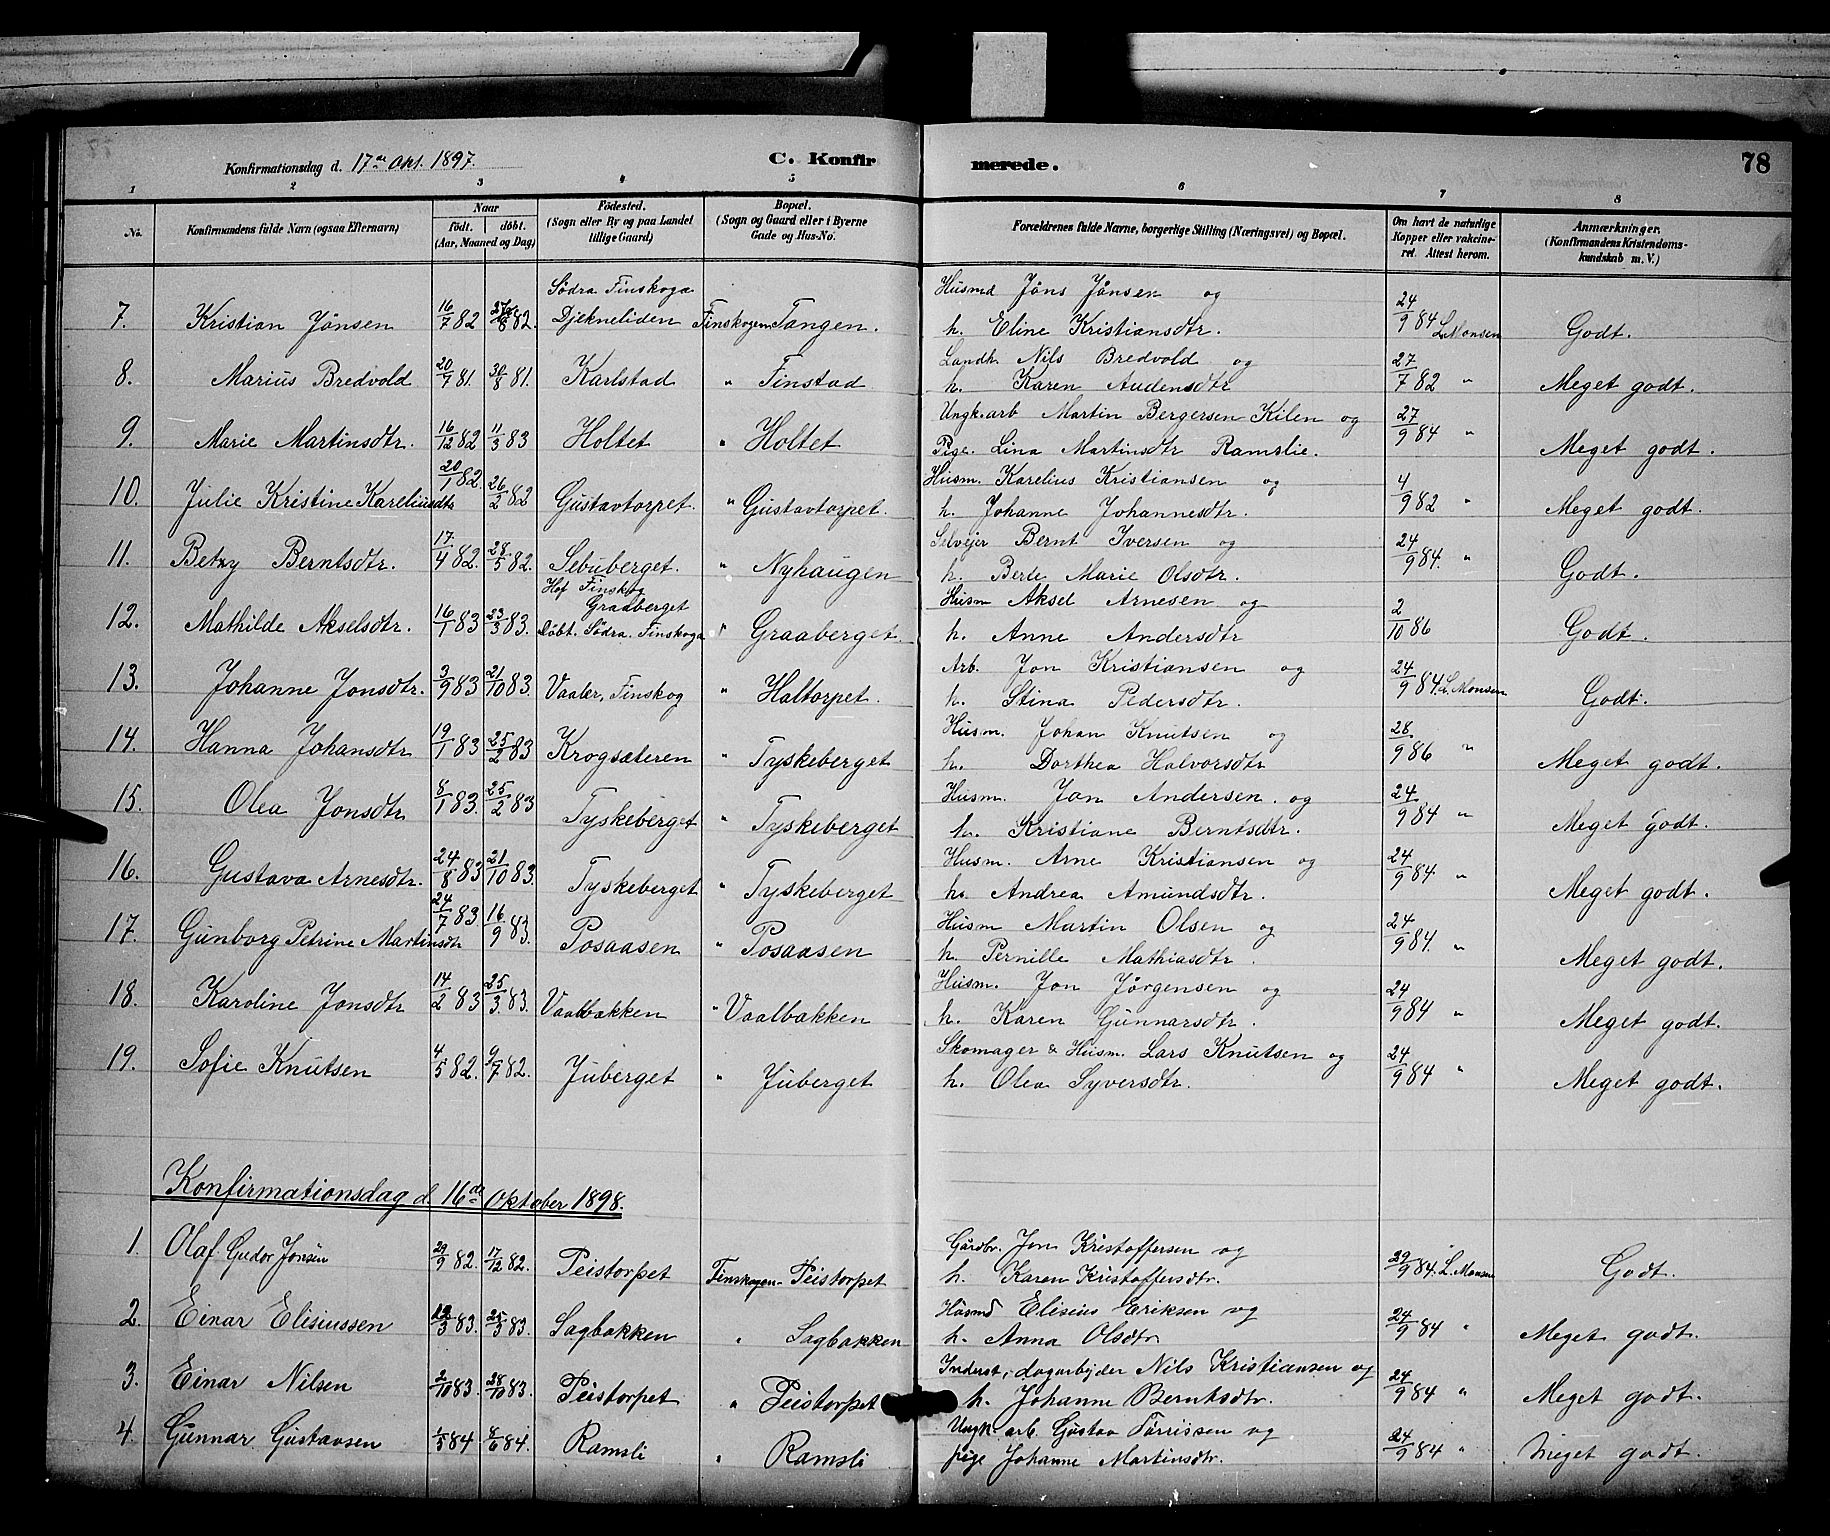 Konfirmationsdag d. 17de Okt. 1897. C. Konfir merede. 78
1 2 3 4 5 6 7 8
No. Konfirmandens fulde Navn (ogsaa Efternavn) Naar født. døbt. (Aar, Maaned og Dag) Fødested. (Sogn eller By og paa Landet tillige Gaard) Bopæl. (Sogn og Gaard eller i Byerne Gade og Hus-No. Forældrenes fulde Navne, borgerlige Stilling (Næringsvei) og Bopæl. Om havt de naturlige Kopper eller vakcineret. Attest herom. Anmærkninger. (Konfirmandens Kristendomskundskab m. V.)
Södra Finskoga Husmd Jöns Jönsen og
7. Kristian Jönsen 16/7 82 27/8 82. Djekneliden Finskogen Tangen. h. Eline Kristiansdtr. 24/9 84 L. Monsen Godt.
Landh. Nils Bredvold og
8. Marius Bredvold 20/7 81. 30/8 81. Karlstad " Finstad h. Karen Audensdtr 27/7 82 " Meget godt.
Ungk.arb Martin Bergersen Kilen og
9. Marie Martinsdtr. 16/12 82 11/3 83 Holtet " Holtet Pige. Lina Martinsdtr Ramslie. 27/9 84 " Meget godt.
Husm. Karelius Kristiansen og
10. Julie Kristine Kareliusdtr 20/1 82. 26/2 82 Gustavtorpet. " Gustavtorpet. h. Johanne Johannesdtr. 4/9 82 " Meget godt.
Selvejer Bernt Iversen og
11. Betzy Berntsdtr. 17/4 82. 28/5 82. Sebuberget. " Nyhaugen h. Berte Marie Olsdtr. 24/9 84. " Godt.
Hof Finskog Graaberget Husm Aksel Arnesen og
12. Mathilde Akselsdtr. 16/1 83 23/3 83. Döbt. Södra. Finskoga " Graaberget. h. Anne Andersdtr 2/10 86 Godt.
Arb. Jon Kristiansen og
13. Johanne Jonsdtr. 3/9 83 21/10 83. Vaaler, Finskog " Haltorpet. h. Stina Pedersdtr. 24/9 84. L. Monsen Godt.
Husm. Johan Knutsen og
14. Hanna Johansdtr 19/1 83 25/2 83 Krogsæteren " Tyskeberget h. Dorthea Halvorsdtr 28/9 86 " Meget godt.
Husm. Jon Andersen. og
15. Olea Jonsdtr 8/1 83. 25/2 83 Tyskeberget " Tyskeberget h. Kristiane Berntsdtr. 24/9 84 " Meget godt.
Husm. Arne Kristiansen og
16. Gustava Arnesdtr. 24/8 83 21/10 83. Tyskeberget " Tyskeberget h. Andrea Amundsdtr. 24/9 84 " Meget godt.
Husm Martin Olsen og
17. Gunborg Petrine Martinsdtr 24/7 83. 16/9 83. Posaasen " Posaasen h. Pernille Mathiasdtr. 24/9 84. " Meget godt.
Husm. Jon Jörgensen og
18. Karoline Jonsdtr 14/2 83 25/3 83. Vaalbakken " Vaalbakken h. Karen Gunnarsdtr. 24/9 84 " Meget godt.
Skomager & Husm. Lars Knutsen og
19. Sofie Knutsen 4/5 82. 9/7 82. Juberget " Juberget h. Olea Syversdtr. 24/9 84 " Meget godt.
Konfirmationsdag d. 16de Oktober 1898.
Gårdbr. Jon Kristoffersen og
1. Olaf Gudor Jonsen 29/9 82. 17/12 82. Peistorpet Finskogen. Peistorpet h. Karen Kristoffersdtr. 29/9 84. L. Monsen Godt.
Husmd Elisius Eriksen og
2. Einar Elisiussen 12/3 83. 25/3 83. Sagbakken " Sagbakken h. Anna Olsdtr. 24/9 84 " Meget godt.
Inderst, dagarbejder Nils Kristiansen og
3. Einar Nilsen 2/10 83. 28/10 83. Peistorpet " Peistorpet h. Johanne Berntsdtr. 24/9 84 " Meget godt.
Ungk. arb. Gustav Torrissen og
4. Gunnar Gustavsen 1/5 84 8/6 84. Ramsli " Ramsli pige Johanne Martinsdtr. 24/9 84 " Meget godt.